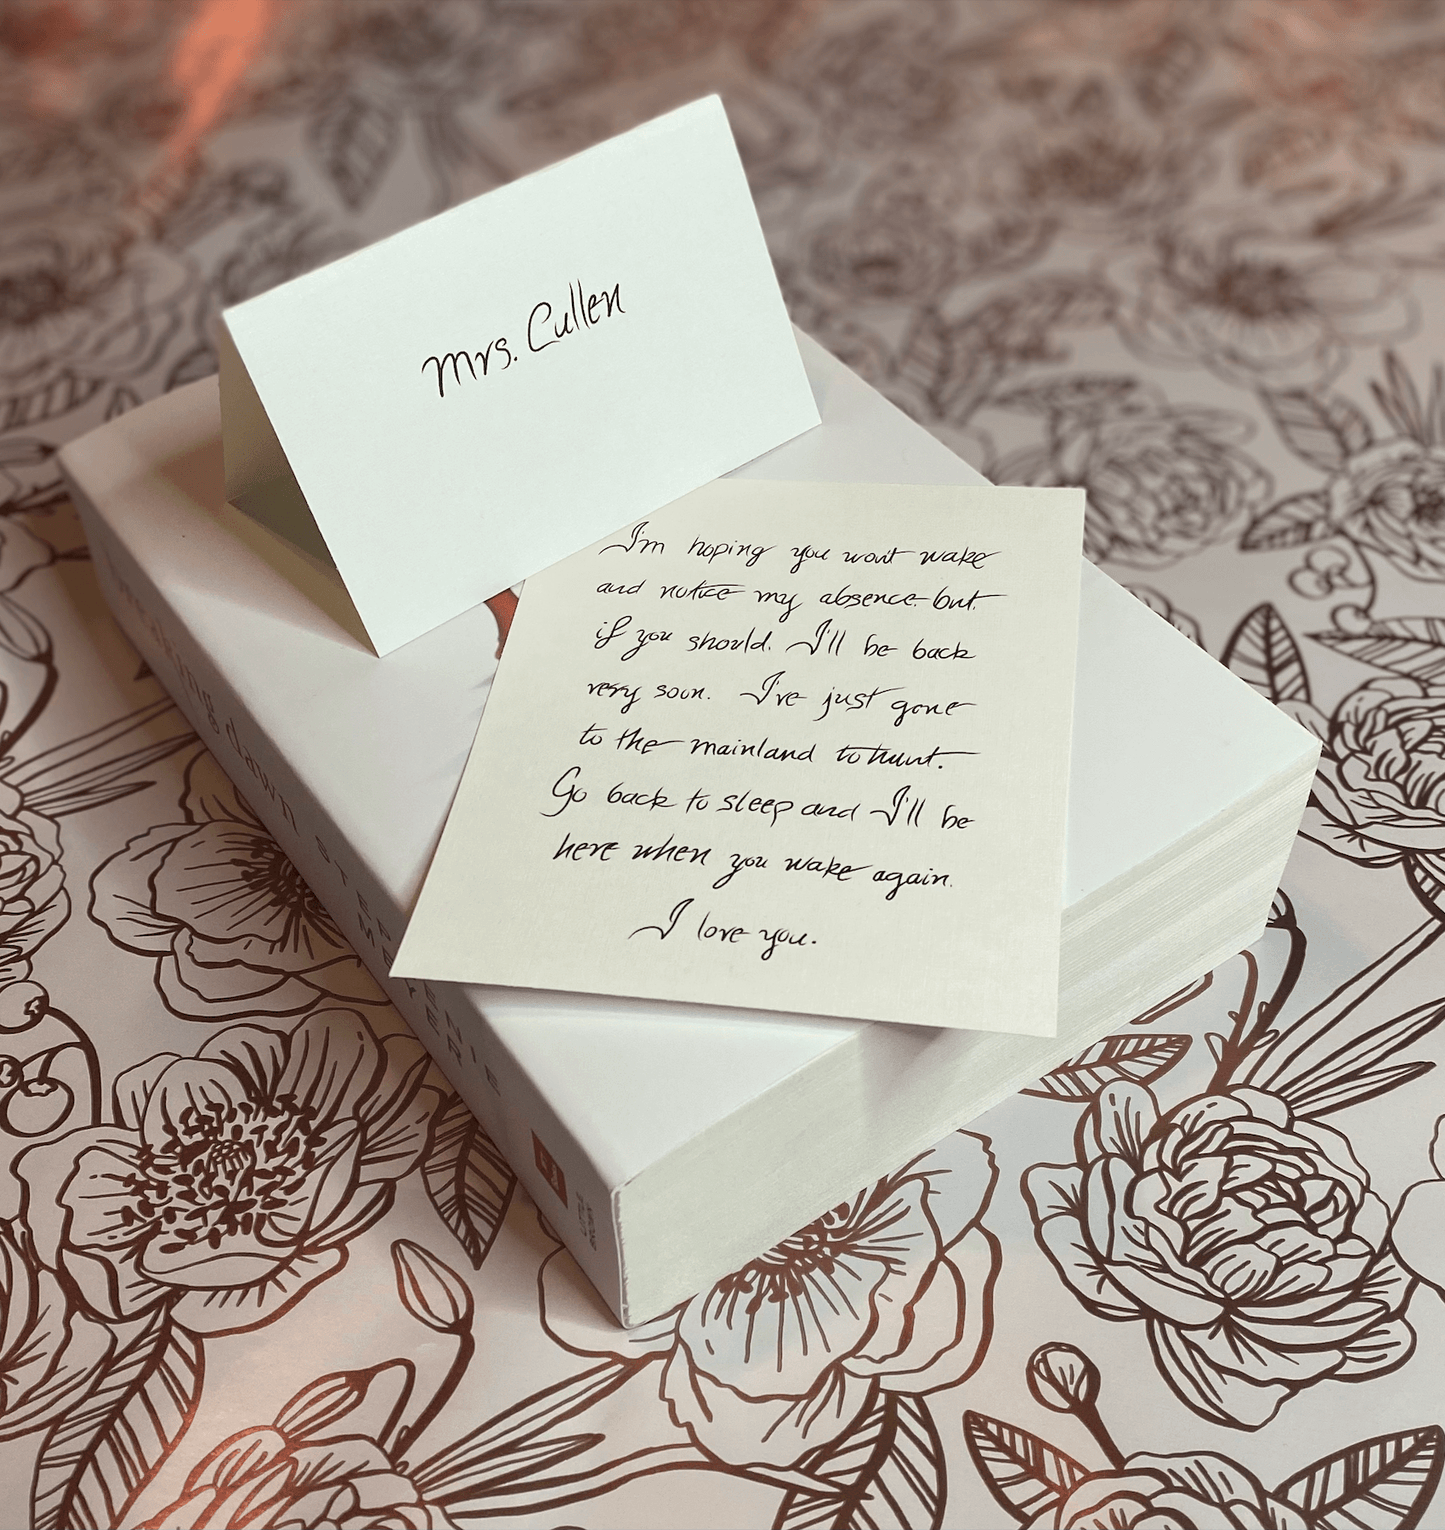 Mrs. Cullen
I'm hoping you won't wake
and notice my absence. but.
if you should. I'll be back
very soon. I've just gone
to the mainland to hunt.
Go back to sleep and I'll be
here when you wake again.
I love you.
breaking dawn STEPHENIE MEYER